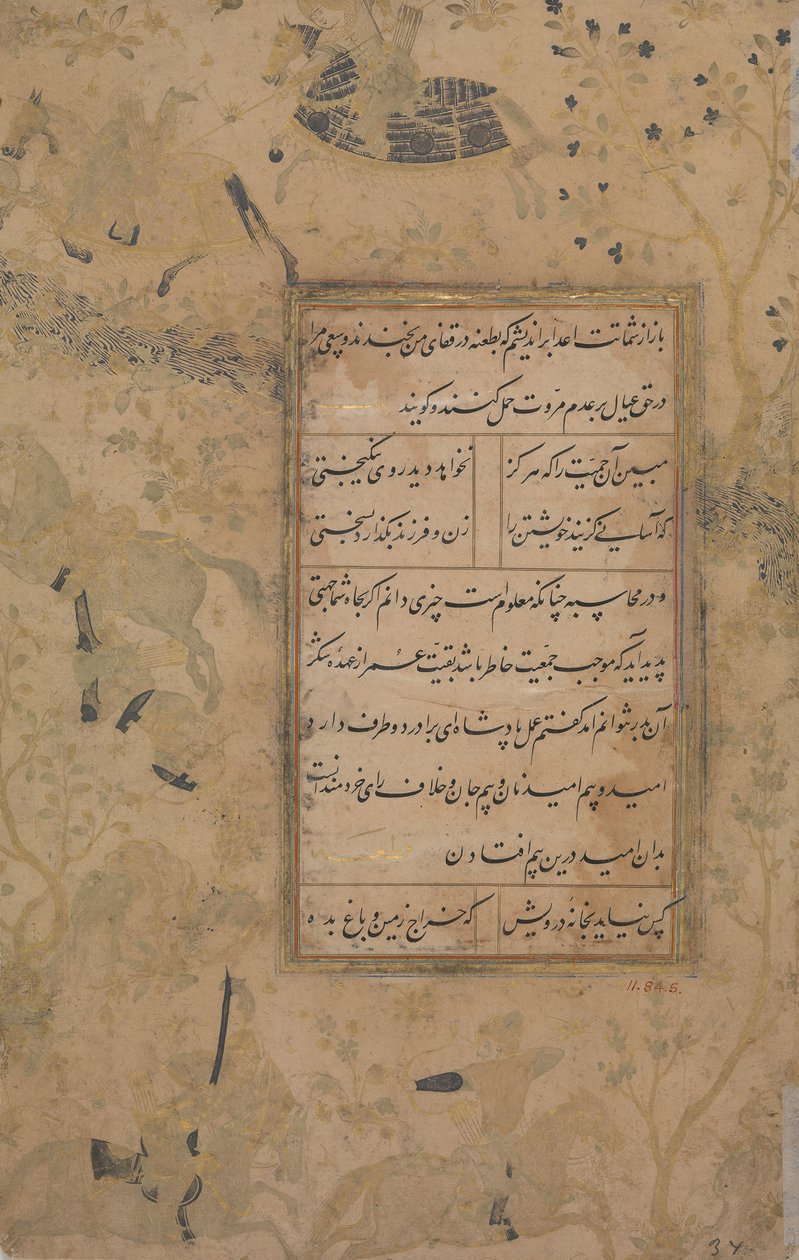 باز از شماتت اعدا براندیشم که بطعنه در قفای من بخندند و سعی مرا
در حق عیال بر عدم مروّت حمل کنند و گویند
مبین آن بی حمیّت را که هرگز نخواهد دید روی نیکبختی
که آسانی گزیند خویشتن را زن و فرزند بگذارد بسختی
و در محاسبه چنانکه معلوم است چیزی دانم اگر بجاه شما جهتی
پدید آید که موجب جمعیّت خاطر باشد بقیّت عمر از عهدهٔ شکر
آن بدر نتوانم آمد گفتم عمل پادشاه ای برادر دو طرف دارد
امید و بیم امید نان و بیم جان و خلاف رای خردمندانست
بدان امید درین بیم افتادن
کس نیاید بخانهٔ درویش که خراج زمین و باغ بده
11.84.5.
37